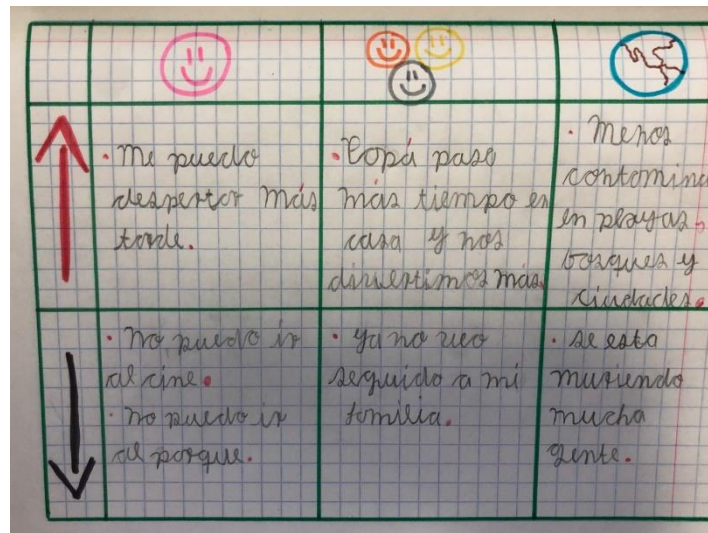 · Me puedo
despertar más
tarde.
· Papá pasa
más tiempo en
casa y nos
divertimos más.
· Menos
contamina
en playas,
bosques y
ciudades.
· No puedo ir
al cine.
· No puedo ir
al parque.
· Ya no veo
seguido a mi
familia.
· Se esta
muriendo
mucha
gente.